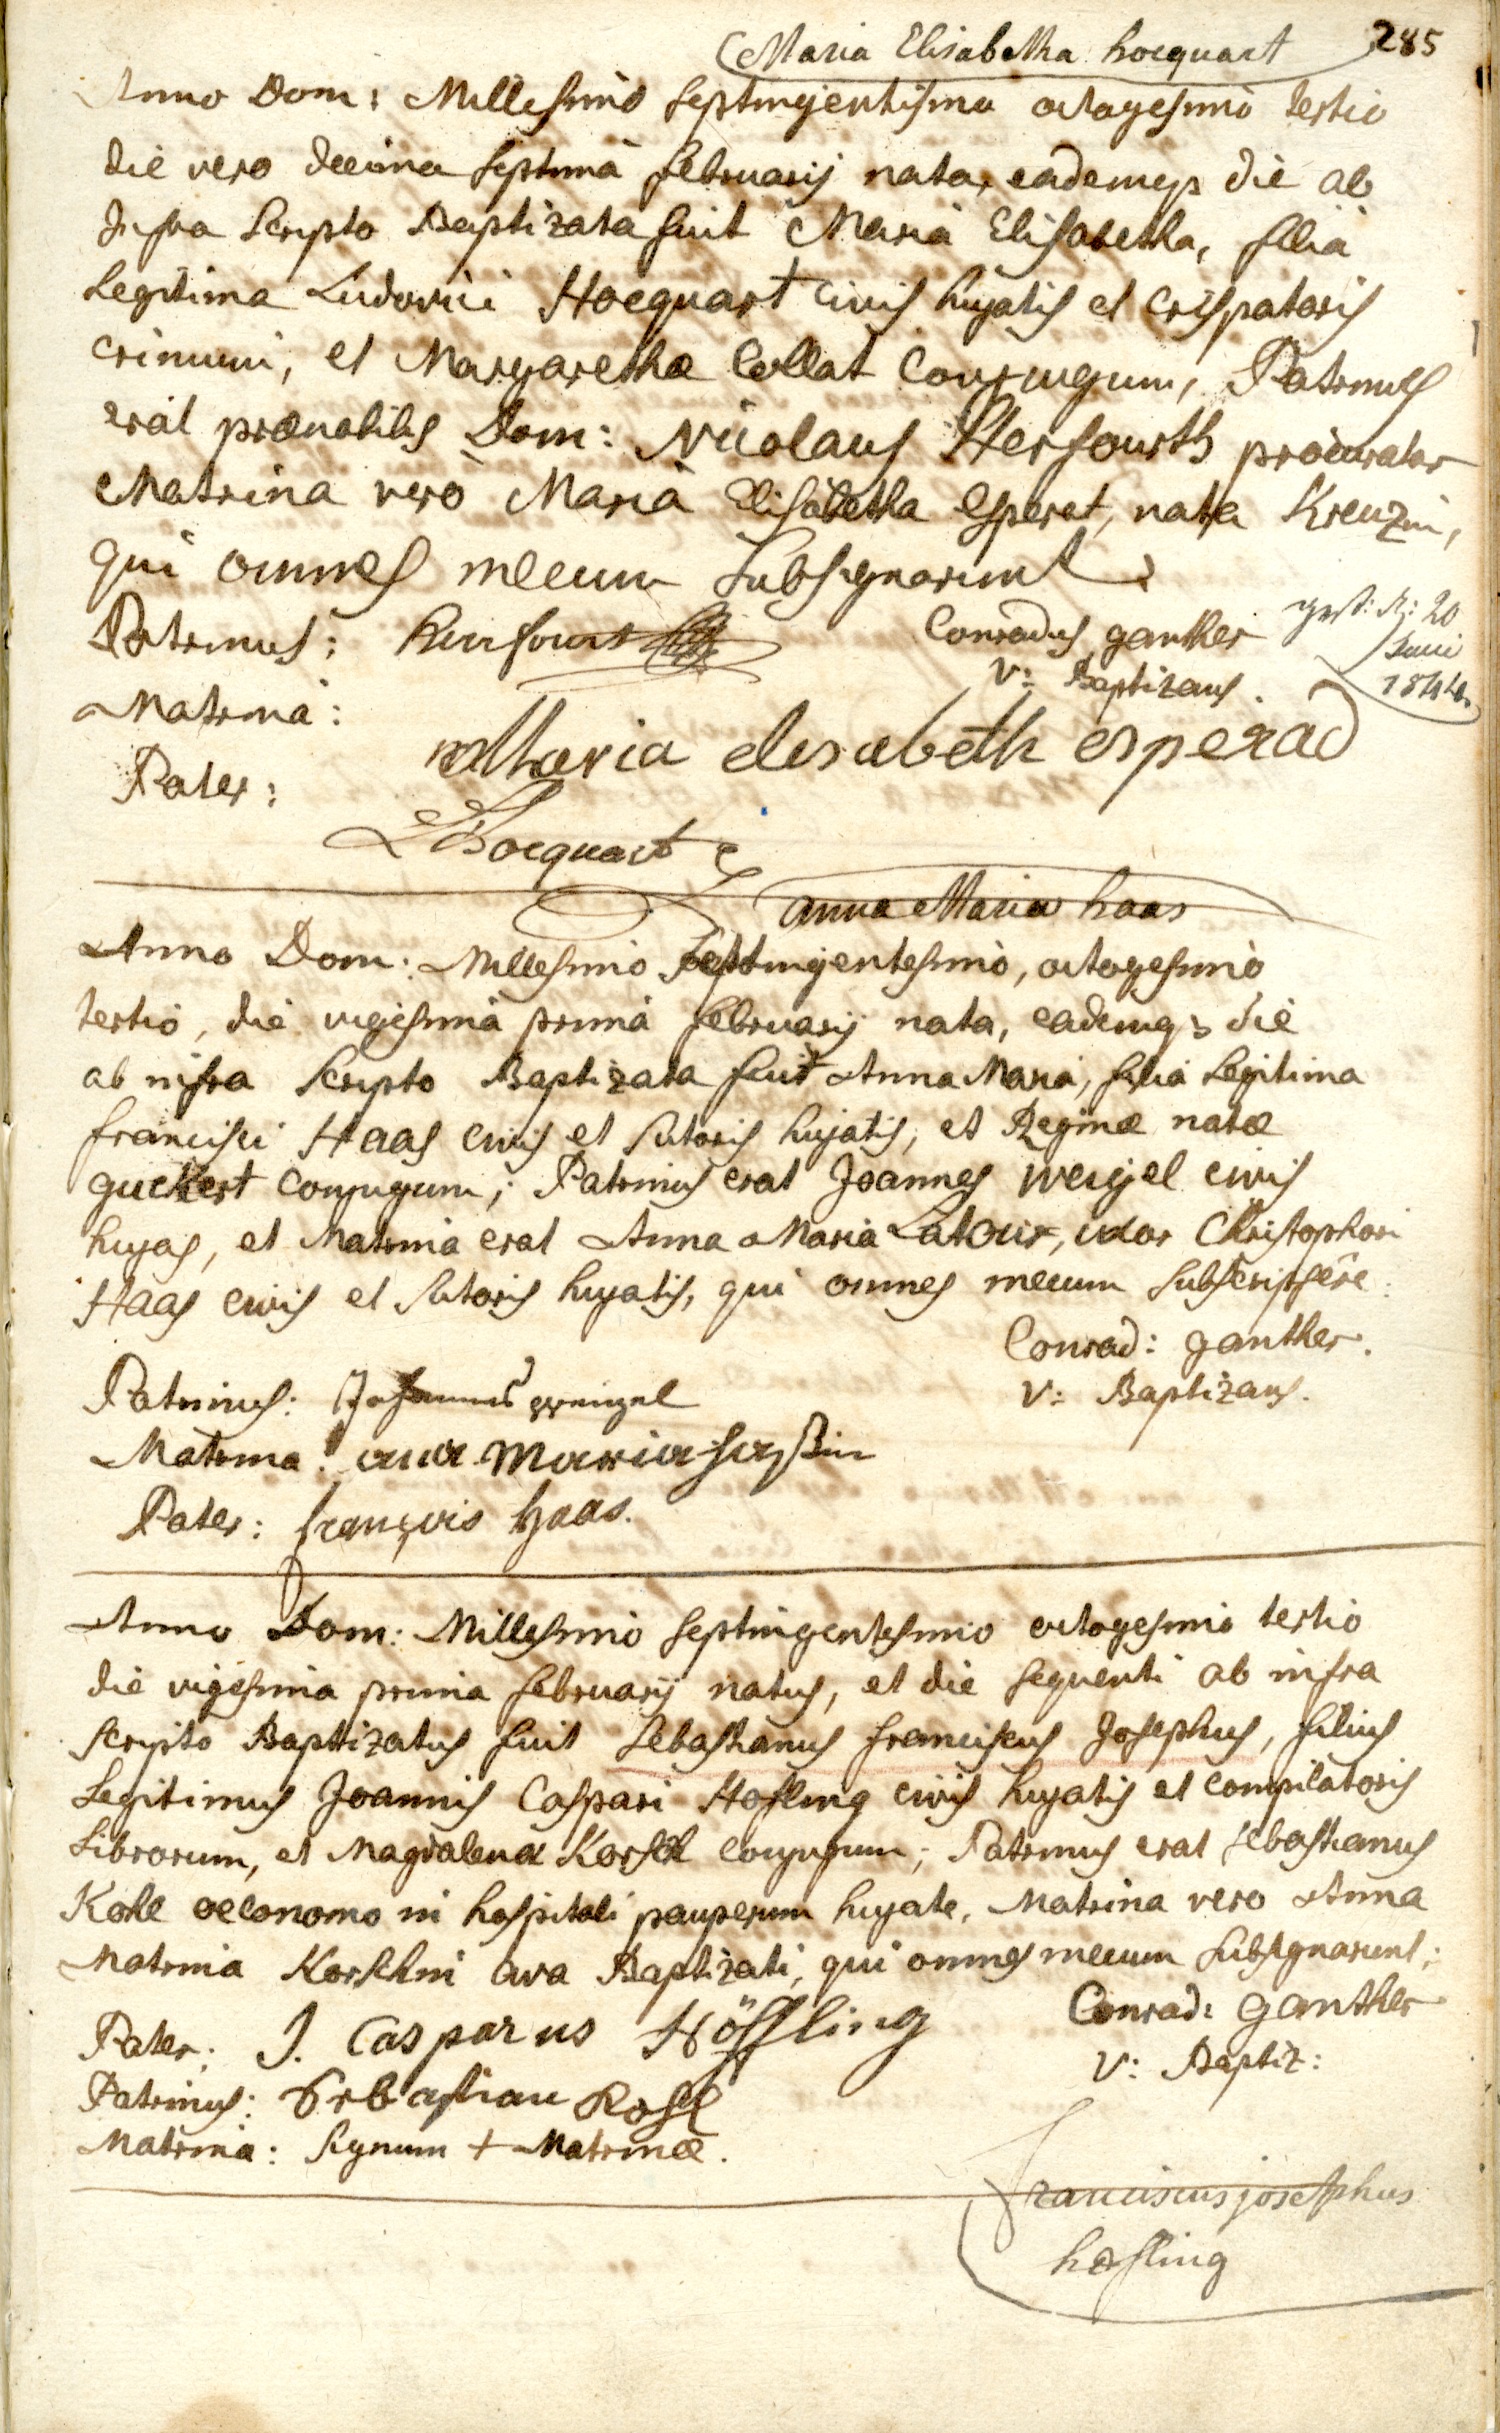 285
Maria Elisabetha hocquart
Anno Dom: Millesimo septingentisimo octogesimo tertio
die vero decima septima februarij nata, eademqs die ab
Infra scripto Baptizata fuit Maria Elisabetha, filia
Legitima Ludovici Hocquart civis hujatis et crispatoris
crinium, et Margarethæ Collat Conjugum, Patrinus
erat prænobilis Dom: Nicolaus Herfourth procurator
Matrina verò Maria Elisabetha Esperet, nata Kreuzin,
qui omnes mecum subsignarunt
Patrinus: herfourt
Conradus ganther
V: Baptizans.
gest: d: 20
Juni
1844
Matrina: Maria elisabeth esperad
Pater: L Hocquart
anna Maria haas
Anno Dom: Millesimo septingentesimo, octogesimo
tertio, die vigesima prima februarij nata, eademqs die
ab infra scripto Baptizata fuit Anna Maria, filia Legitima
francisci Haas civis et sutoris hujatis, et Reginæ natæ
guckert Conjugum; Patrinus erat Joannes wengel civis
hujas, et Matrina erat Anna Maria Latour, uxor Christophori
Haas civis et sutoris hujatis, qui omnes mecum subscripsêre.
Conrad: ganther.
V: Baptizans.
Patrinus: Johannes wengel
Matrina: ana Maria haßin
Pater: françois haas.
Anno Dom: Millesimo septingentesimo octogesimo tertio
die vigesima prima februarij natus, et die sequenti ab infra
scripto Baptizatus fuit Sebastianus franciscus Josephus, filius
Legitimus Joannis Caspari Hofling civis hujatis et compilatoris
Librorum, et Magdalena conjugum; Patrinus erat Sebastianus
oeconomo in hospitali pauperum hujate, Matrina vero Anna
Matrina ava Baptizati, qui omnes mecum subsignarunt;
Conrad: Ganther
V: Baptiz:
Pater: J. Casparus Höffling
Patrinus: Sebastian
Matrina: signum + Matrinæ.
Franciscus josephus
hofling